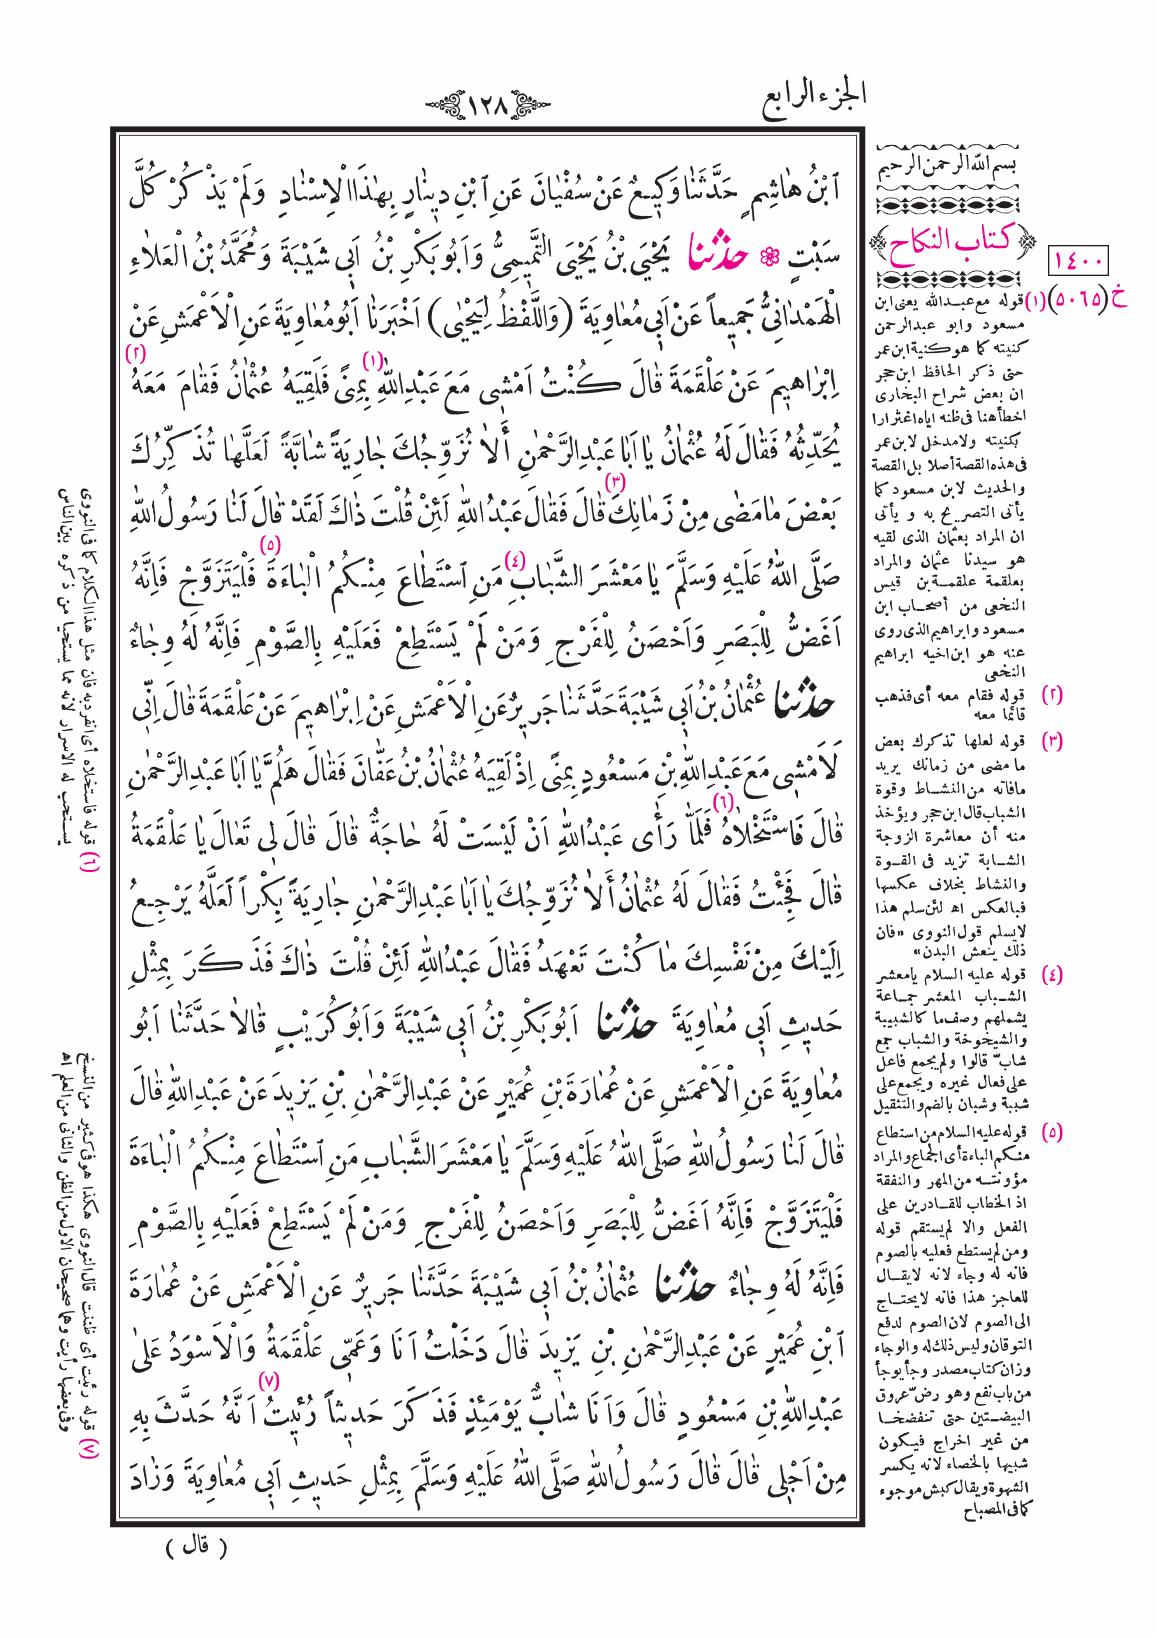 الجزء الرابع
١٢٨
ابْنُ هَاشِمٍ حَدَّثَنَا وَكِيعٌ عَنْ سُفْيَانَ عَنِ ابْنِ دِينَارٍ بِهٰذَا الْاِسْنَادِ وَلَمْ يَذْكُرْ كُلَّ
سَبْتٍ ❁ حَدَّثَنَا يَحْيَى بْنُ يَحْيَى التَّمِيمِىُّ وَاَبُو بَكْرِ بْنُ اَبِى شَيْبَةَ وَمُحَمَّدُ بْنُ الْعَلَاءِ
الْهَمْدَانِىُّ جَمِيعاً عَنْ اَبِى مُعَاوِيَةَ (وَاللَّفْظُ لِيَحْيٰى) اَخْبَرَنَا اَبُو مُعَاوِيَةَ عَنِ الْاَعْمَشِ عَنْ
اِبْرَاهِيمَ عَنْ عَلْقَمَةَ قَالَ كُنْتُ اَمْشِى مَعَ عَبْدِاللّٰهِ (١) بِمِنًى فَلَقِيَهُ عُثْمَانُ فَقَامَ مَعَهُ (٢)
يُحَدِّثُهُ فَقَالَ لَهُ عُثْمَانُ يَا اَبَا عَبْدِالرَّحْمٰنِ أَلَا نُزَوِّجُكَ جَارِيَةً شَابَّةً لَعَلَّهَا تُذَكِّرُكَ
بَعْضَ مَا مَضٰى مِنْ زَمَانِكَ (٣) قَالَ فَقَالَ عَبْدُاللّٰهِ لَئِنْ قُلْتَ ذَاكَ لَقَدْ قَالَ لَنَا رَسُولُ اللّٰهِ
صَلَّى اللّٰهُ عَلَيْهِ وَسَلَّمَ يَا مَعْشَرَ الشَّبَابِ (٤) مَنِ اسْتَطَاعَ مِنْكُمُ الْبَاءَةَ (٥) فَلْيَتَزَوَّجْ فَاِنَّهُ
اَغَضُّ لِلْبَصَرِ وَاَحْصَنُ لِلْفَرْجِ وَمَنْ لَمْ يَسْتَطِعْ فَعَلَيْهِ بِالصَّوْمِ فَاِنَّهُ لَهُ وِجَاءٌ
حَدَّثَنَا عُثْمَانُ بْنُ اَبِى شَيْبَةَ حَدَّثَنَا جَرِيرٌ عَنِ الْاَعْمَشِ عَنْ اِبْرَاهِيمَ عَنْ عَلْقَمَةَ قَالَ اِنِّى
لَاَمْشِى مَعَ عَبْدِاللّٰهِ بْنِ مَسْعُودٍ بِمِنًى اِذْ لَقِيَهُ عُثْمَانُ بْنُ عَفَّانَ فَقَالَ هَلُمَّ يَا اَبَا عَبْدِالرَّحْمٰنِ
قَالَ فَاسْتَخْلَاهُ (٦) فَلَمَّا رَأٰى عَبْدُاللّٰهِ اَنْ لَيْسَتْ لَهُ حَاجَةٌ قَالَ قَالَ لِى تَعَالَ يَا عَلْقَمَةُ
قَالَ فَجِئْتُ فَقَالَ لَهُ عُثْمَانُ أَلَا نُزَوِّجُكَ يَا اَبَا عَبْدِالرَّحْمٰنِ جَارِيَةً بِكْراً لَعَلَّهُ يَرْجِعُ
اِلَيْكَ مِنْ نَفْسِكَ مَا كُنْتَ تَعْهَدُ فَقَالَ عَبْدُاللّٰهِ لَئِنْ قُلْتَ ذَاكَ فَذَكَرَ بِمِثْلِ
حَدِيثِ اَبِى مُعَاوِيَةَ حَدَّثَنَا اَبُو بَكْرِ بْنُ اَبِى شَيْبَةَ وَاَبُو كُرَيْبٍ قَالَا حَدَّثَنَا اَبُو
مُعَاوِيَةَ عَنِ الْاَعْمَشِ عَنْ عُمَارَةَ بْنِ عُمَيْرٍ عَنْ عَبْدِالرَّحْمٰنِ بْنِ يَزِيدَ عَنْ عَبْدِاللّٰهِ قَالَ
قَالَ لَنَا رَسُولُ اللّٰهِ صَلَّى اللّٰهُ عَلَيْهِ وَسَلَّمَ يَا مَعْشَرَ الشَّبَابِ مَنِ اسْتَطَاعَ مِنْكُمُ الْبَاءَةَ
فَلْيَتَزَوَّجْ فَاِنَّهُ اَغَضُّ لِلْبَصَرِ وَاَحْصَنُ لِلْفَرْجِ وَمَنْ لَمْ يَسْتَطِعْ فَعَلَيْهِ بِالصَّوْمِ
فَاِنَّهُ لَهُ وِجَاءٌ حَدَّثَنَا عُثْمَانُ بْنُ اَبِى شَيْبَةَ حَدَّثَنَا جَرِيرٌ عَنِ الْاَعْمَشِ عَنْ عُمَارَةَ
ابْنِ عُمَيْرٍ عَنْ عَبْدِالرَّحْمٰنِ بْنِ يَزِيدَ قَالَ دَخَلْتُ اَنَا وَعَمِّى عَلْقَمَةُ وَالْاَسْوَدُ عَلٰى
عَبْدِاللّٰهِ بْنِ مَسْعُودٍ قَالَ وَاَنَا شَابٌّ يَوْمَئِذٍ فَذَكَرَ حَدِيثاً رُئِيتُ (٧) اَنَّهُ حَدَّثَ بِهِ
مِنْ اَجْلِى قَالَ قَالَ رَسُولُ اللّٰهِ صَلَّى اللّٰهُ عَلَيْهِ وَسَلَّمَ بِمِثْلِ حَدِيثِ اَبِى مُعَاوِيَةَ وَزَادَ
( قال )
بسم الله الرحمن الرحيم
كتاب النكاح
١٤٠٠
خ (٥٠٦٥)
(١) قوله مع عبدالله يعنى ابن
مسعود وابو عبدالرحمن
كنيته كما هو كنية ابن عمر
حتى ذكر الحافظ ابن حجر
ان بعض شراح البخارى
اخطأ هنا فى ظنه اياه اغترارا
بكنيته ولا مدخل لابن عمر
فى هذه القصة أصلا بل القصة
والحديث لابن مسعود كما
يأتى التصريح به و يأتى
ان المراد بعثمان الذى لقيه
هو سيدنا عثمان والمراد
بعلقمة علقمة بن قيس
النخعى من أصحاب ابن
مسعود وابراهيم الذى روى
عنه هو ابن اخيه ابراهيم
النخعى
(٢) قوله فقام معه أى فذهب
قائما معه
(٣) قوله لعلها تذكرك بعض
ما مضى من زمانك يريد
مافاته من النشاط وقوة
الشباب قال ابن حجر ويؤخذ
منه أن معاشرة الزوجة
الشابة تزيد فى القوة
والنشاط بخلاف عكسها
فبالعكس اه لئن سلم هذا
لايسلم قول النووى «فان
ذلك ينعش البدن»
(٤) قوله عليه السلام يامعشر
الشباب المعشر جماعة
يشملهم وصف ما كالشبيبة
والشيخوخة والشباب جمع
شابّ قالوا ولم يجمع فاعل
على فعال غيره ويجمع على
شببة وشبان بالضم والتثقيل
(٥) قوله عليه السلام من استطاع
منكم الباءة أى الجماع والمراد
مؤونته من المهر والنفقة
اذ الخطاب للقادرين على
الفعل والا لم يستقم قوله
ومن لم يستطع فعليه بالصوم
فانه له وجاء لانه لايقال
للعاجز هذا فانه لايحتاج
الى الصوم لان الصوم لدفع
التوقان وليس ذلك له والوجاء
وزان كتاب مصدر وجأ يوجأ
من باب نفع وهو رضّ عروق
البيضتين حتى تنفضخا
من غير اخراج فيكون
شبيها بالخصاء لانه يكسر
الشهوة ويقال كبش موجوء
كما فى المصباح
(٦) قوله فاستخلاه أى انفرد به فان مثل هذا الكلام كما فى النووى
يستحب له الاسرار لانه مما يستحيا من ذكره بين الناس
(٧) قوله رئيت أى ظننت قال النووى هكذا هو فى كثير من النسخ
وفى بعضها رأيت وهما صحيحان الاول من الظن والثانى من العلم اه